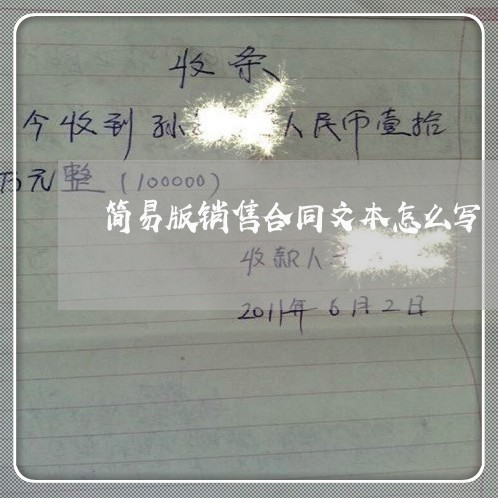 收条
今收到孙 人民币壹拾
万元整(100000)
简易版销售合同文本怎么写
收款人
2011年6月2日